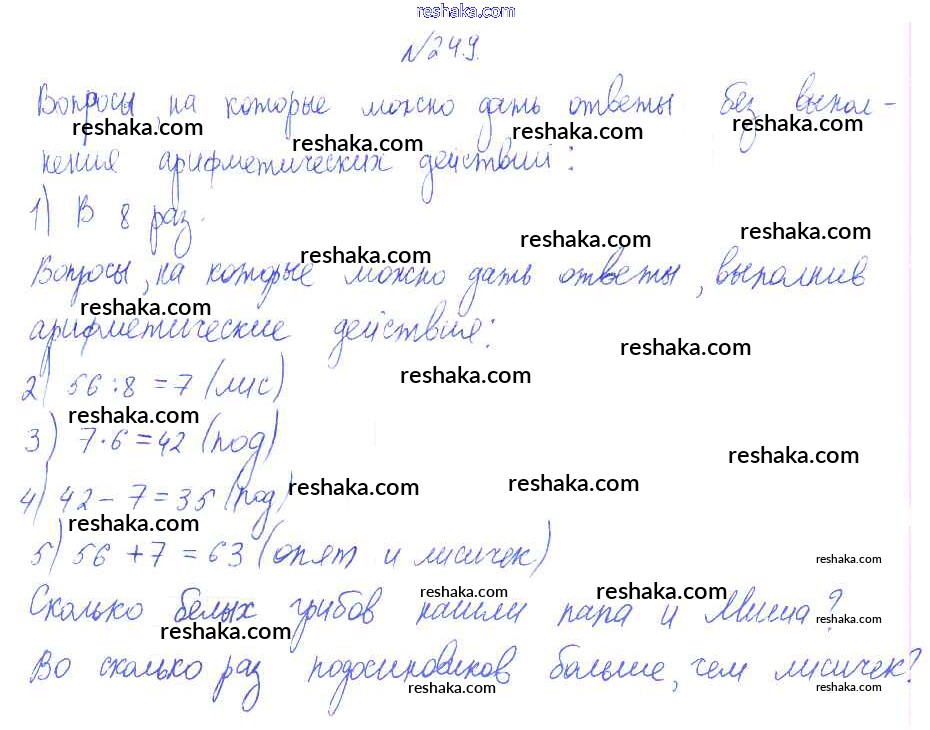 reshaka.com
№249.
Вопросы, на которые можно дать ответы без выпол-
reshaka.com reshaka.com reshaka.com reshaka.com
нения арифметических действий:
1) В 8 раз.
reshaka.com reshaka.com reshaka.com
Вопросы, на которые можно дать ответы, выполнив
reshaka.com
арифметические действие:
reshaka.com reshaka.com
2) 56:8=7 (лис)
reshaka.com
3) 7·6=42 (под)
reshaka.com reshaka.com reshaka.com
4) 42-7=35 (под)
reshaka.com
5) 56+7=63 (опят и лисичек)
reshaka.com
Сколько белых грибов нашли папа и Миша?
reshaka.com reshaka.com reshaka.com reshaka.com
Во сколько раз подосиновиков больше, чем лисичек?
reshaka.com reshaka.com